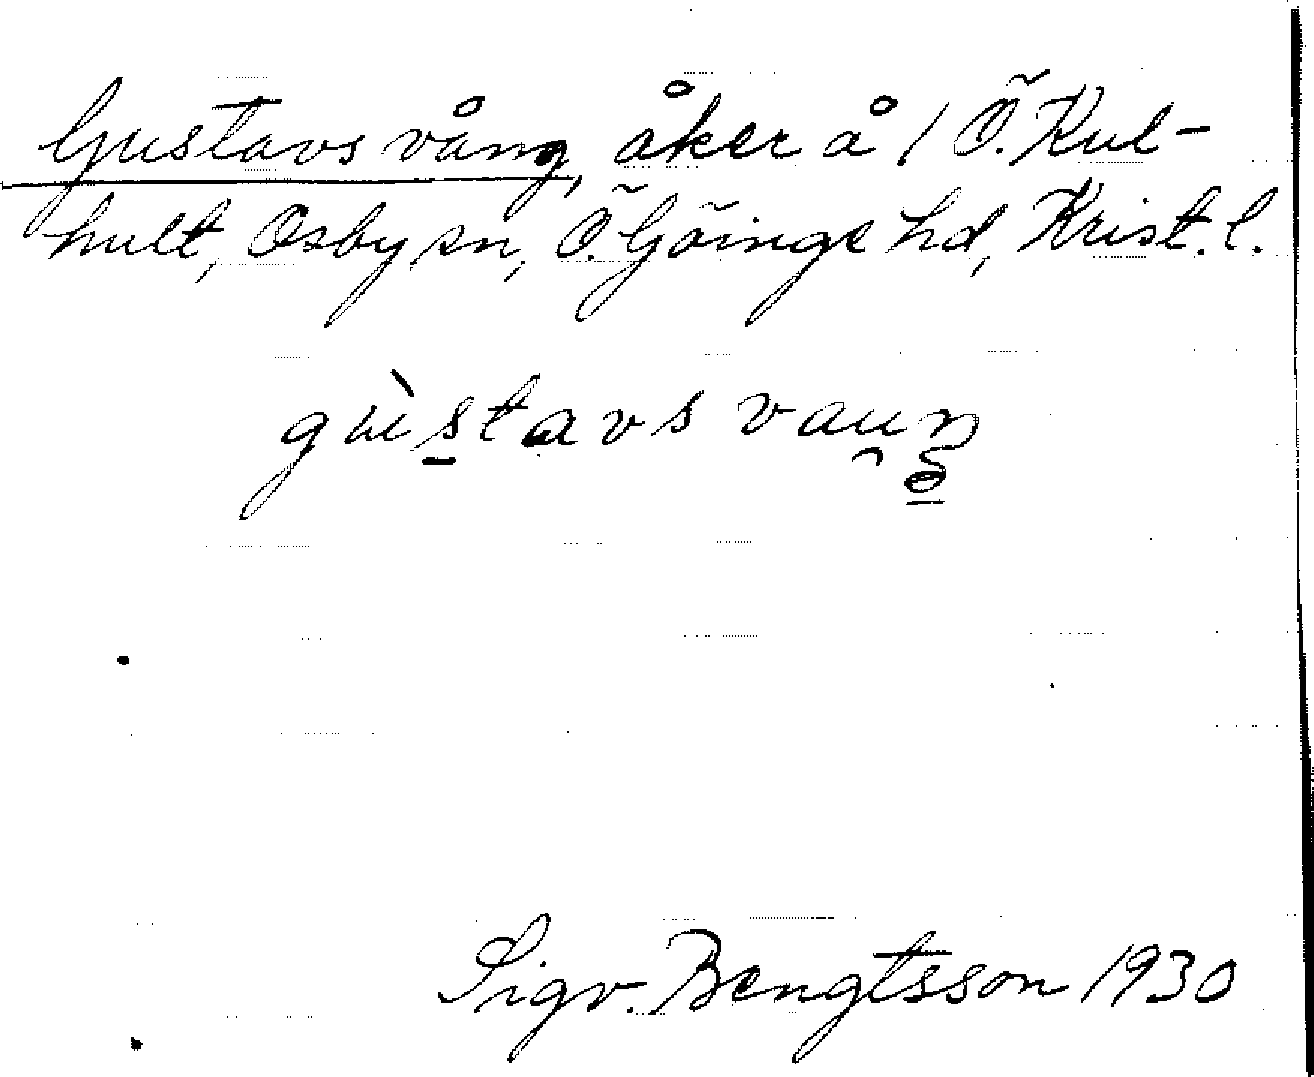 Gustavs vång, åker å 1 Ö. Kul-
hult, Osby sn, Ö. Göinge hd, Krist. l.
gùstavs vaun̥
Sigv. Bengtsson 1930